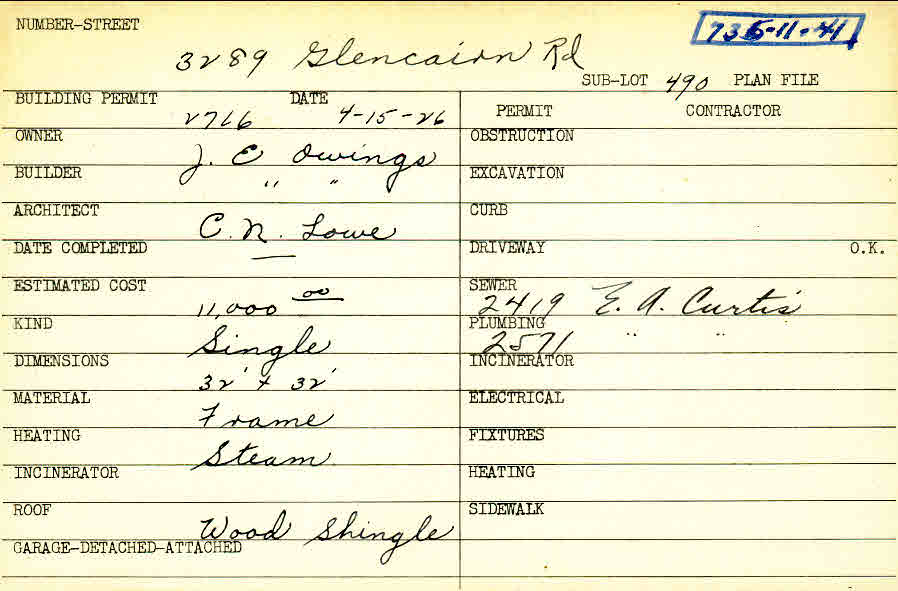 NUMBER-STREET
3289 Glencairn Rd
SUB-LOT 490 PLAN FILE
BUILDING PERMIT DATE
2766 4-15-26
PERMIT CONTRACTOR
OWNER
J. C Owings
OBSTRUCTION
BUILDER
" "
EXCAVATION
ARCHITECT
C. N. Lowe
CURB
DATE COMPLETED
—
DRIVEWAY O.K.
ESTIMATED COST
11,000 00
SEWER
2419 E. A. Curtis
KIND
Single
PLUMBING
2571 " "
DIMENSIONS
32' x 32'
INCINERATOR
MATERIAL
Frame
ELECTRICAL
HEATING
Steam
FIXTURES
INCINERATOR
HEATING
ROOF
Wood Shingle
SIDEWALK
GARAGE-DETACHED-ATTACHED